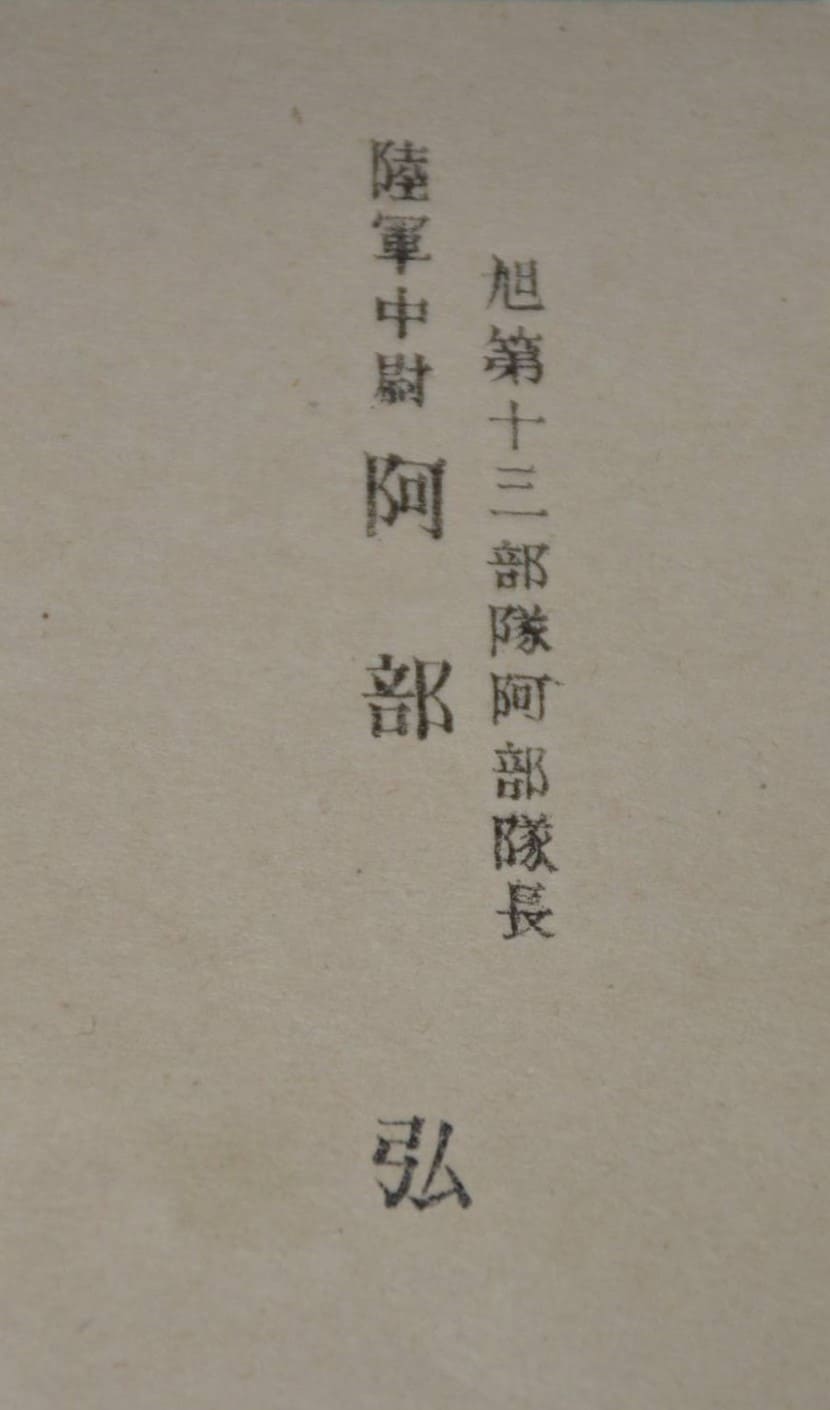 旭第十三部隊阿部隊長
陸軍中尉 阿部 弘